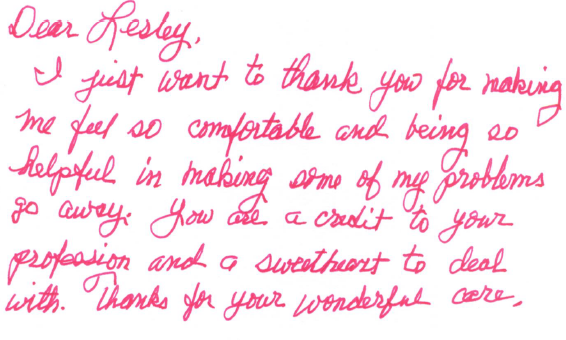 Dear Lesley,
I just want to thank you for making
me feel so comfortable and being so
helpful in making some of my problems
go away. You are a credit to your
profession and a sweetheart to deal
with. Thanks for your wonderful care.